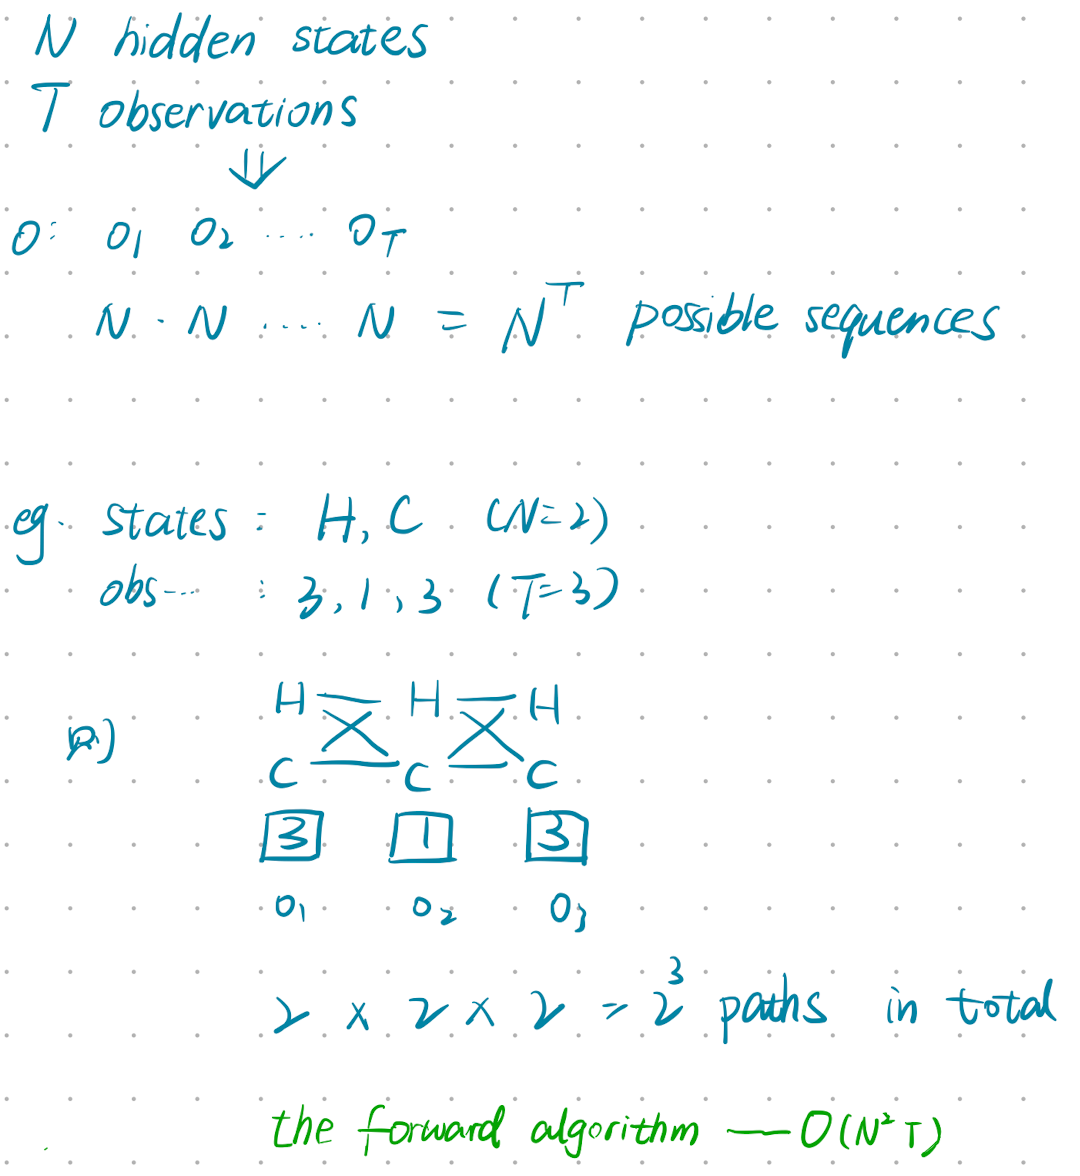 N hidden states
T observations
⇓
O: O₁ O₂ ···· O_T
N · N ···· N = N^T possible sequences
eg. states: H, C (N=2)
obs--·· : 3, 1, 3 (T=3)
H H H
C C C
3 1 3
O₁ O₂ O₃
2 × 2 × 2 = 2³ paths in total
the forward algorithm — O(N²T)